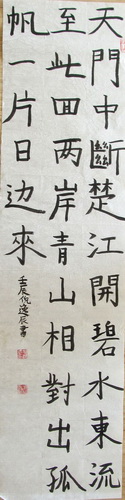 天門中斷楚江開碧水東流
至此回两岸青山相對出孤
帆一片日边來
壬辰倪逸辰書